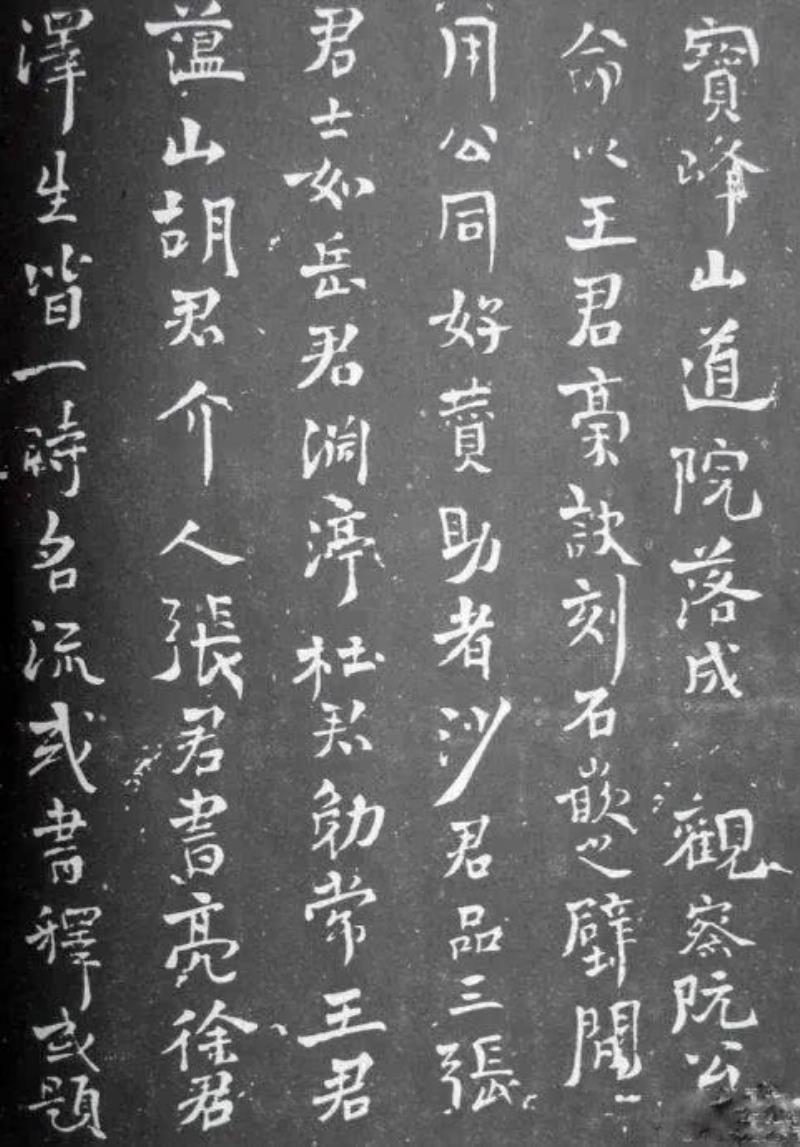 寶峰山道院落成　觀察阮公
命以王君稾訣刻石嵌之壁間
用公同好贊助者沙君品三張
君士如岳君澗渟杜君勉常王君
薀山胡君介人張君書亮徐君
澤生皆一時名流或書釋或題